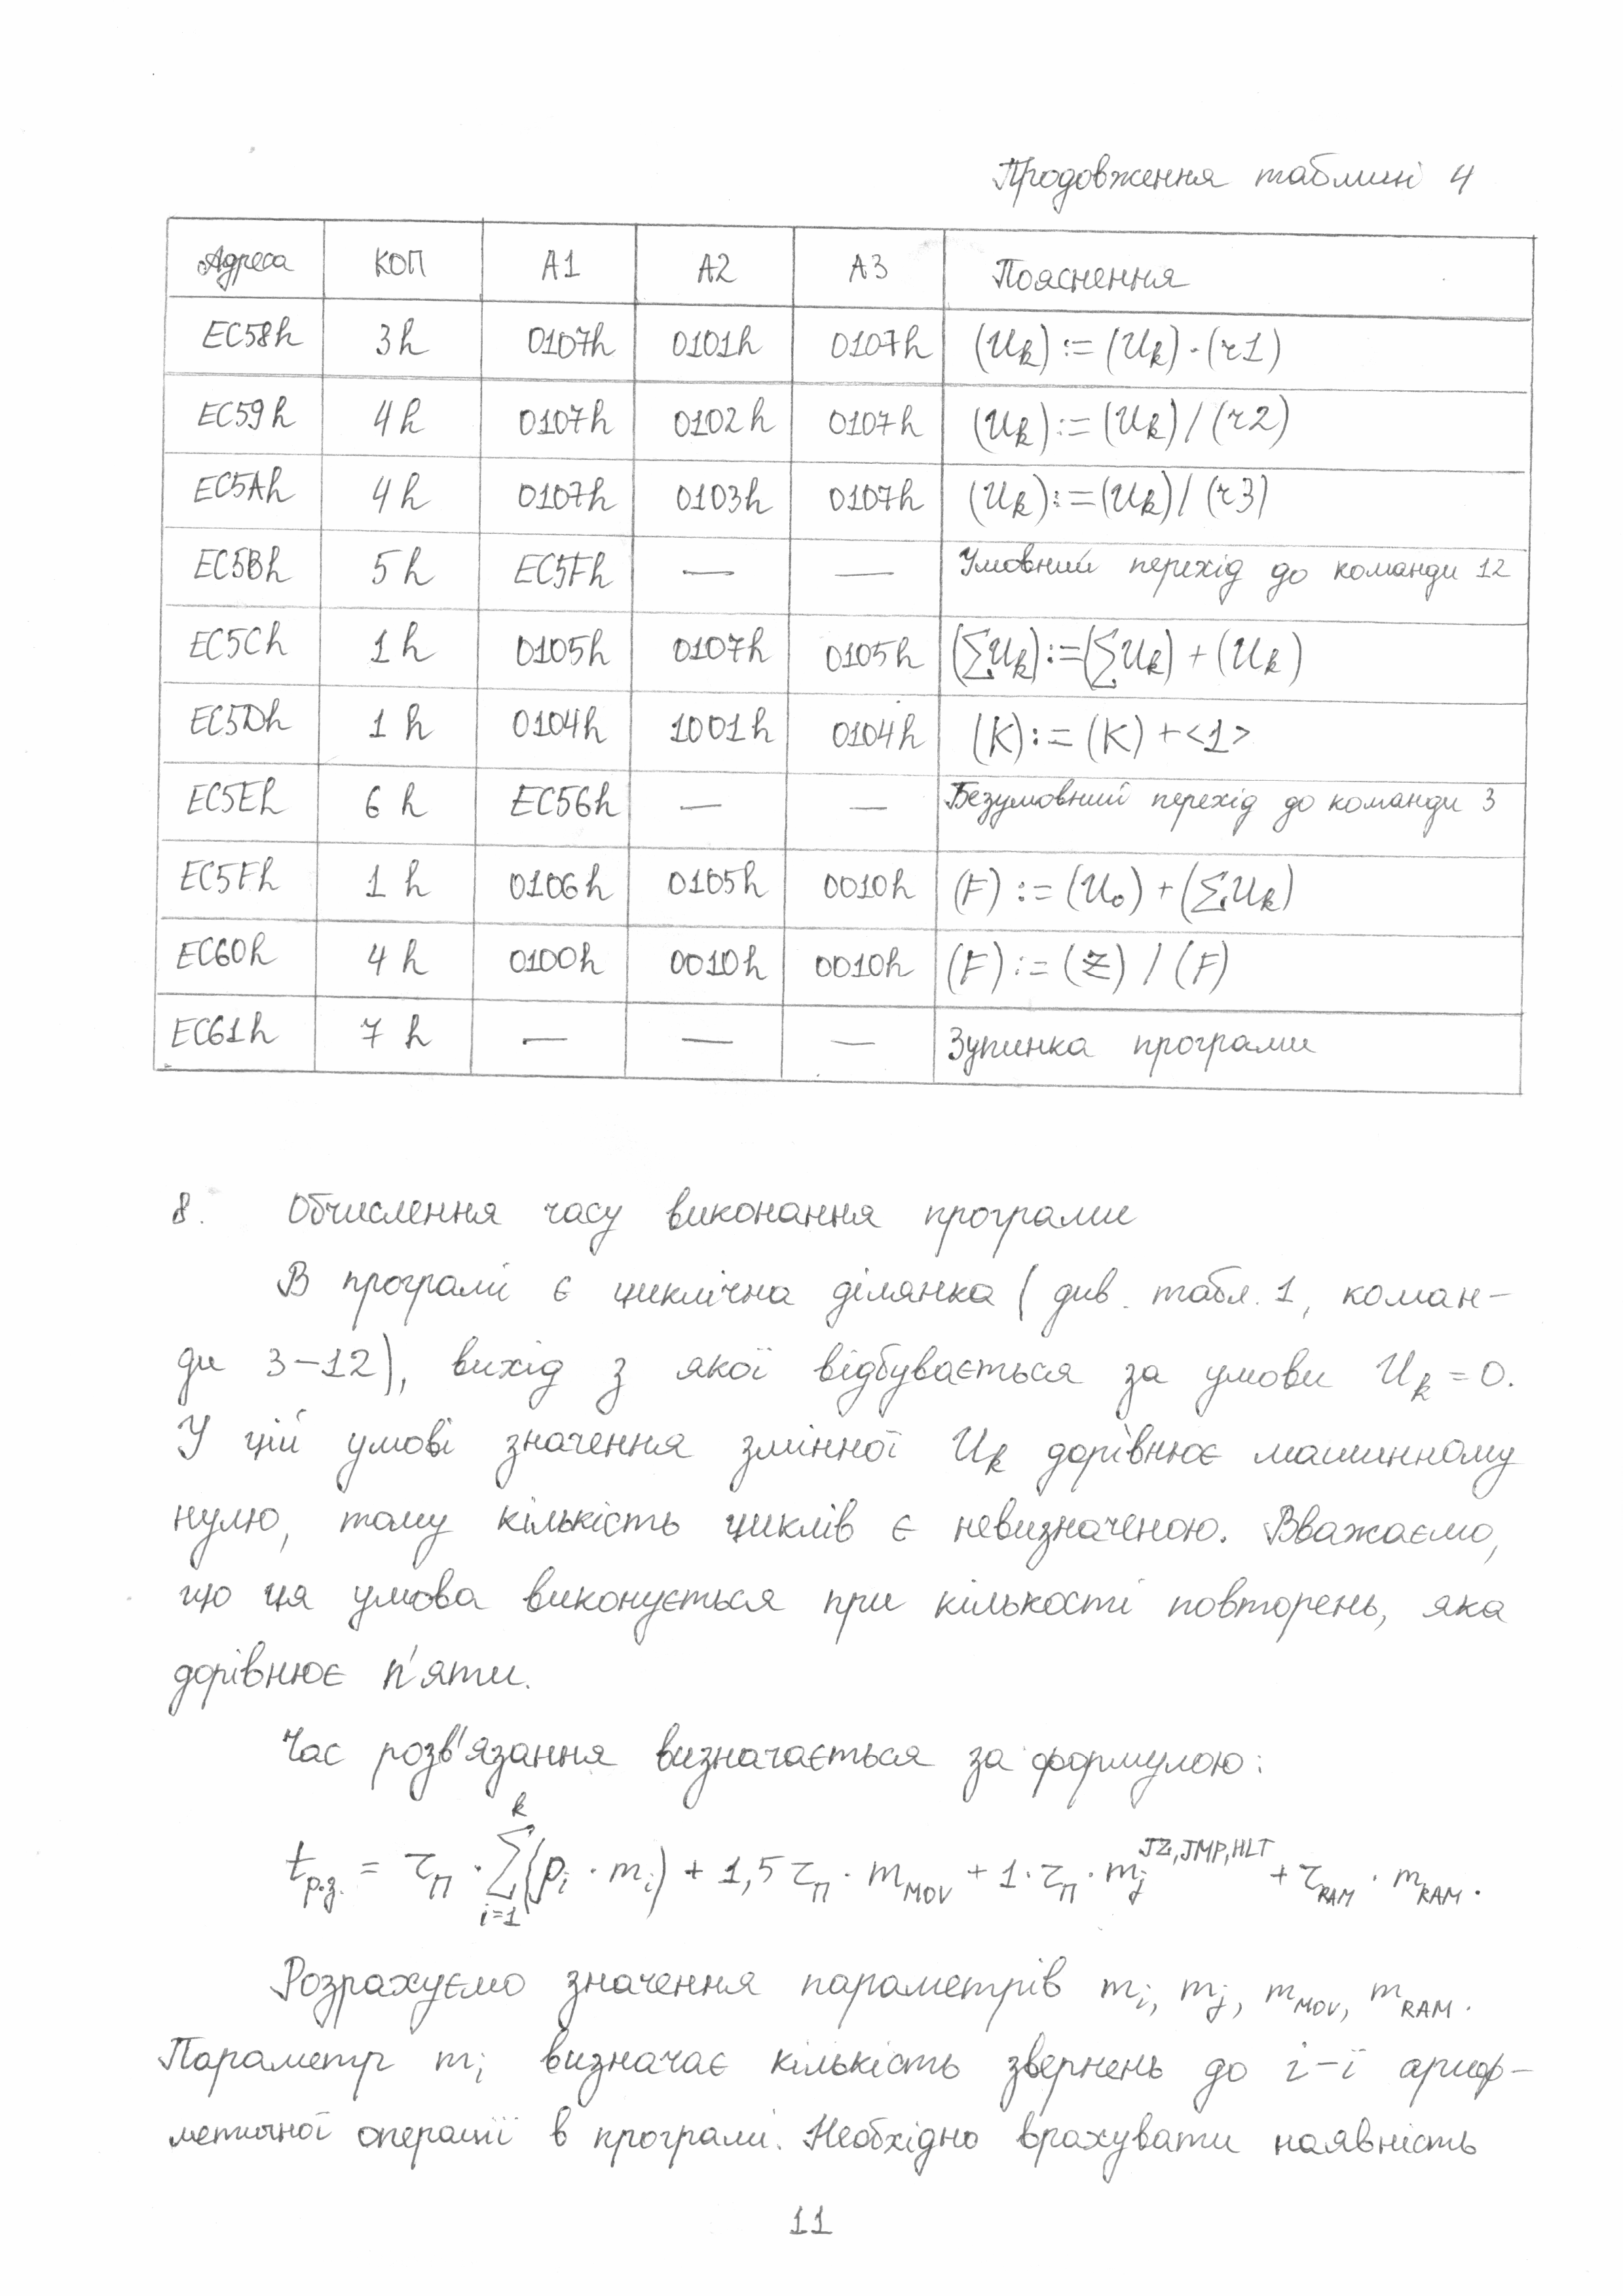 Продовження таблиці 4
Адреса КОП A1 A2 A3 Пояснення
EC58h 3h 0107h 0101h 0107h (U_k) := (U_k) · (r1)
EC59h 4h 0107h 0102h 0107h (U_k) := (U_k) / (r2)
EC5Ah 4h 0107h 0103h 0107h (U_k) := (U_k) / (r3)
EC5Bh 5h EC5Fh — — Умовний перехід до команди 12
EC5Ch 1h 0105h 0107h 0105h (∑U_k) := (∑U_k) + (U_k)
EC5Dh 1h 0104h 1001h 0104h (K) := (K) + <1>
EC5Eh 6h EC56h — — Безумовний перехід до команди 3
EC5Fh 1h 0106h 0105h 0010h (F) := (U_0) + (∑U_k)
EC60h 4h 0100h 0010h 0010h (F) := (Z) / (F)
EC61h 7h — — — Зупинка програми
8. Обчислення часу виконання програми
В програмі є циклічна ділянка (див. табл. 1, коман-
ди 3–12), вихід з якої відбувається за умови U_k = 0.
У цій умові значення змінної U_k дорівнює машинному
нулю, тому кількість циклів є невизначеною. Вважаємо,
що ця умова виконується при кількості повторень, яка
дорівнює п'яти.
Час розв'язання визначається за формулою:
t_р.з. = τ_П · ∑_{i=1}^{k} (p_i · m_i) + 1,5 τ_П · m_MOV + 1 · τ_П · m_j^{JZ, JMP, HLT} + τ_RAM · m_RAM.
Розрахуємо значення параметрів m_i, m_j, m_MOV, m_RAM.
Параметр m_i визначає кількість звернень до i-ї ариф-
метичної операції в програмі. Необхідно врахувати наявність
11